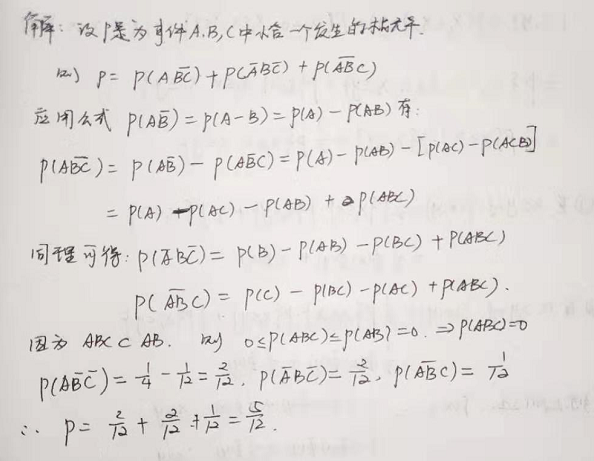 解: 设P是为事件A.B,C中恰一个发生的概率.
则 P = P(AB̅C̅) + P(A̅BC̅) + P(A̅B̅C)
应用公式 P(AB̅) = P(A-B) = P(A) - P(AB) 有:
P(AB̅C̅) = P(AB̅) - P(AB̅C) = P(A) - P(AB) - [P(AC) - P(ACB)]
= P(A) - P(AC) - P(AB) + P(ABC)
同理可得: P(A̅BC̅) = P(B) - P(AB) - P(BC) + P(ABC)
P(A̅B̅C) = P(C) - P(BC) - P(AC) + P(ABC).
因为 ABC⊂AB. 则 0≤P(ABC)≤P(AB)=0. ⇒P(ABC)=0
P(AB̅C̅) = 1/4 - 1/12 = 2/12, P(A̅BC̅) = 2/12, P(A̅B̅C) = 1/12
∴ P = 2/12 + 2/12 + 1/12 = 5/12.